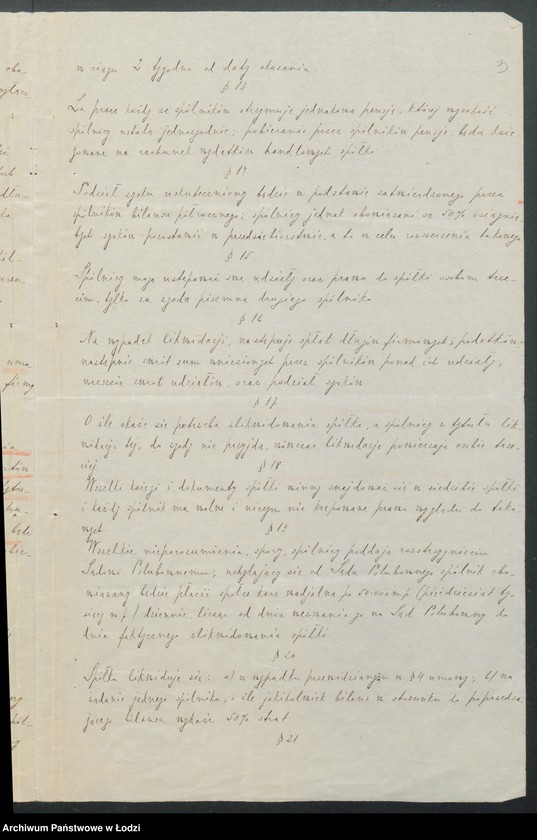 3
w ciągu 2 tygodni od daty okazania.
§ 13
Za pracę każdy ze spólników otrzymuje jednakową pensję, której wysokość
spólnicy ustalą jednozgodnie; pobierane przez spólników pensje będą księ-
gowane na rachunek wydatków handlowych spółki
§ 14
Podział zysku uskuteczniony będzie na podstawie zatwierdzonego przez
spólników bilansu półrocznego; spólnicy jednak obowiązani są 50% osiągnię-
tych zysków pozostawić w przedsiębiorstwie, a to w celu rozszerzenia takowego
§ 15
Spólnicy mogą ustępować swe udziały oraz prawa do spółki osobom trze-
cim, tylko za zgodą pisemną drugiego spólnika
§ 16
Na wypadek likwidacji, następuje spłata długów firmowych i podatków
następnie zwrot sum wniesionych przez spólników ponad ich udziały,
wreszcie zwrot udziałów, oraz podział zysków
§ 17
O ile okaże się potrzeba zlikwidowania spółki, a spólnicy z tytułu lik-
widacji tej, do zgody nie przyjdą, wówczas likwidację powierzają osobie trze-
ciej
§ 18
Wszelkie księgi i dokumenty spółki winny znajdować się w siedzibie spółki
i każdy spólnik ma wolne i niczym nie krępowane prawo wglądu do tako-
wych
§ 19
Wszelkie nieporozumienia, spory, spólnicy poddają rozstrzygnięciu
Sądowi Polubownemu; uchylający się od Sądu Polubownego spólnik obo-
wiązany będzie płacić spółce karę wadjalną po 50.000 mp (pięćdziesiąt ty-
sięcy mp) dziennie, licząc od dnia wezwania go na Sąd Polubowny do
dnia faktycznego zlikwidowania spółki
§ 20
Spółka likwiduje się: a) w wypadku przewidzianym w § 4 umowy; b) na
żądanie jednego spólnika, o ile jakikolwiek bilans w stosunku do poprzedza-
jącego bilansu wykaże 50% strat
§ 21
Archiwum Państwowe w Łodzi